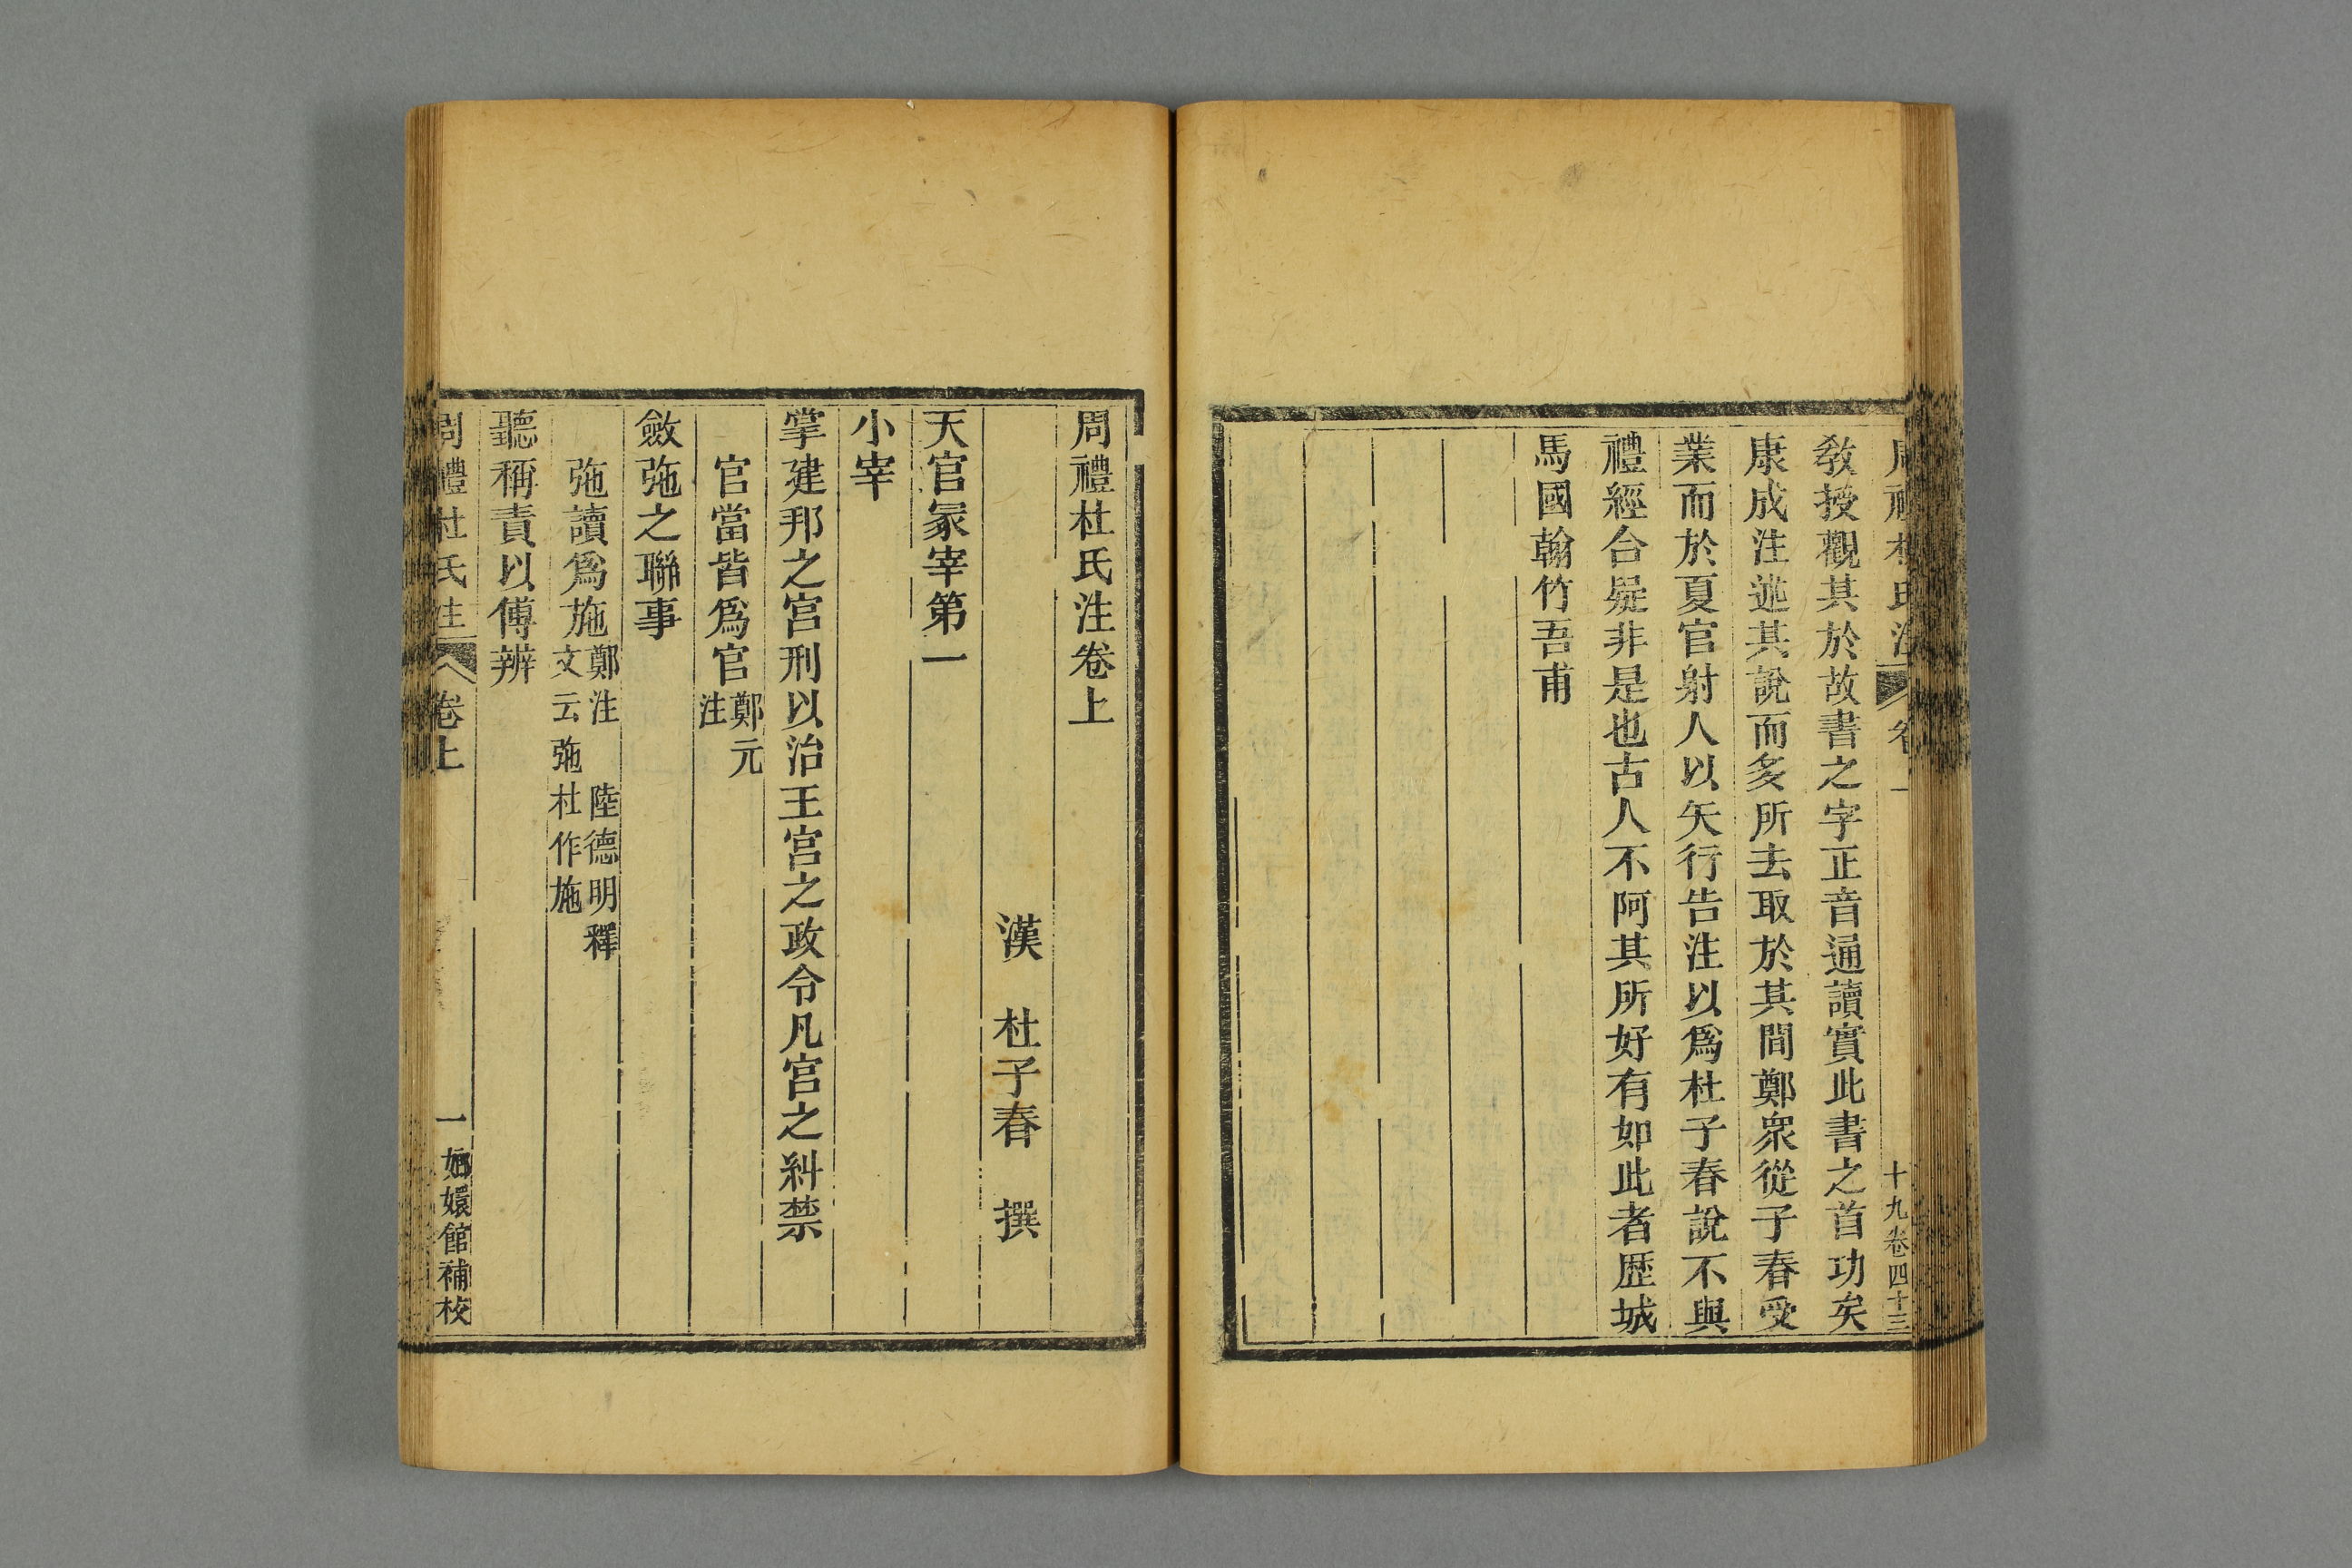 教授觀其於故書之字正音通讀實此書之首功矣
康成注述其說而多所去取於其間鄭衆從子春受
業而於夏官射人以矢行告注以爲杜子春說不與
禮經合疑非是也古人不阿其所好有如此者歷城
馬國翰竹吾甫
十九卷四十三
周禮杜氏注卷上
漢　杜子春　撰
天官冢宰第一
小宰
掌建邦之宫刑以治王宫之政令凡宫之糾禁
官當皆爲官鄭元注
斂弛之聯事
弛讀爲施鄭注　陸德明釋文云弛杜作施
聽稱責以傅辨
周禮杜氏注　卷上
一　嫏嬛館補校